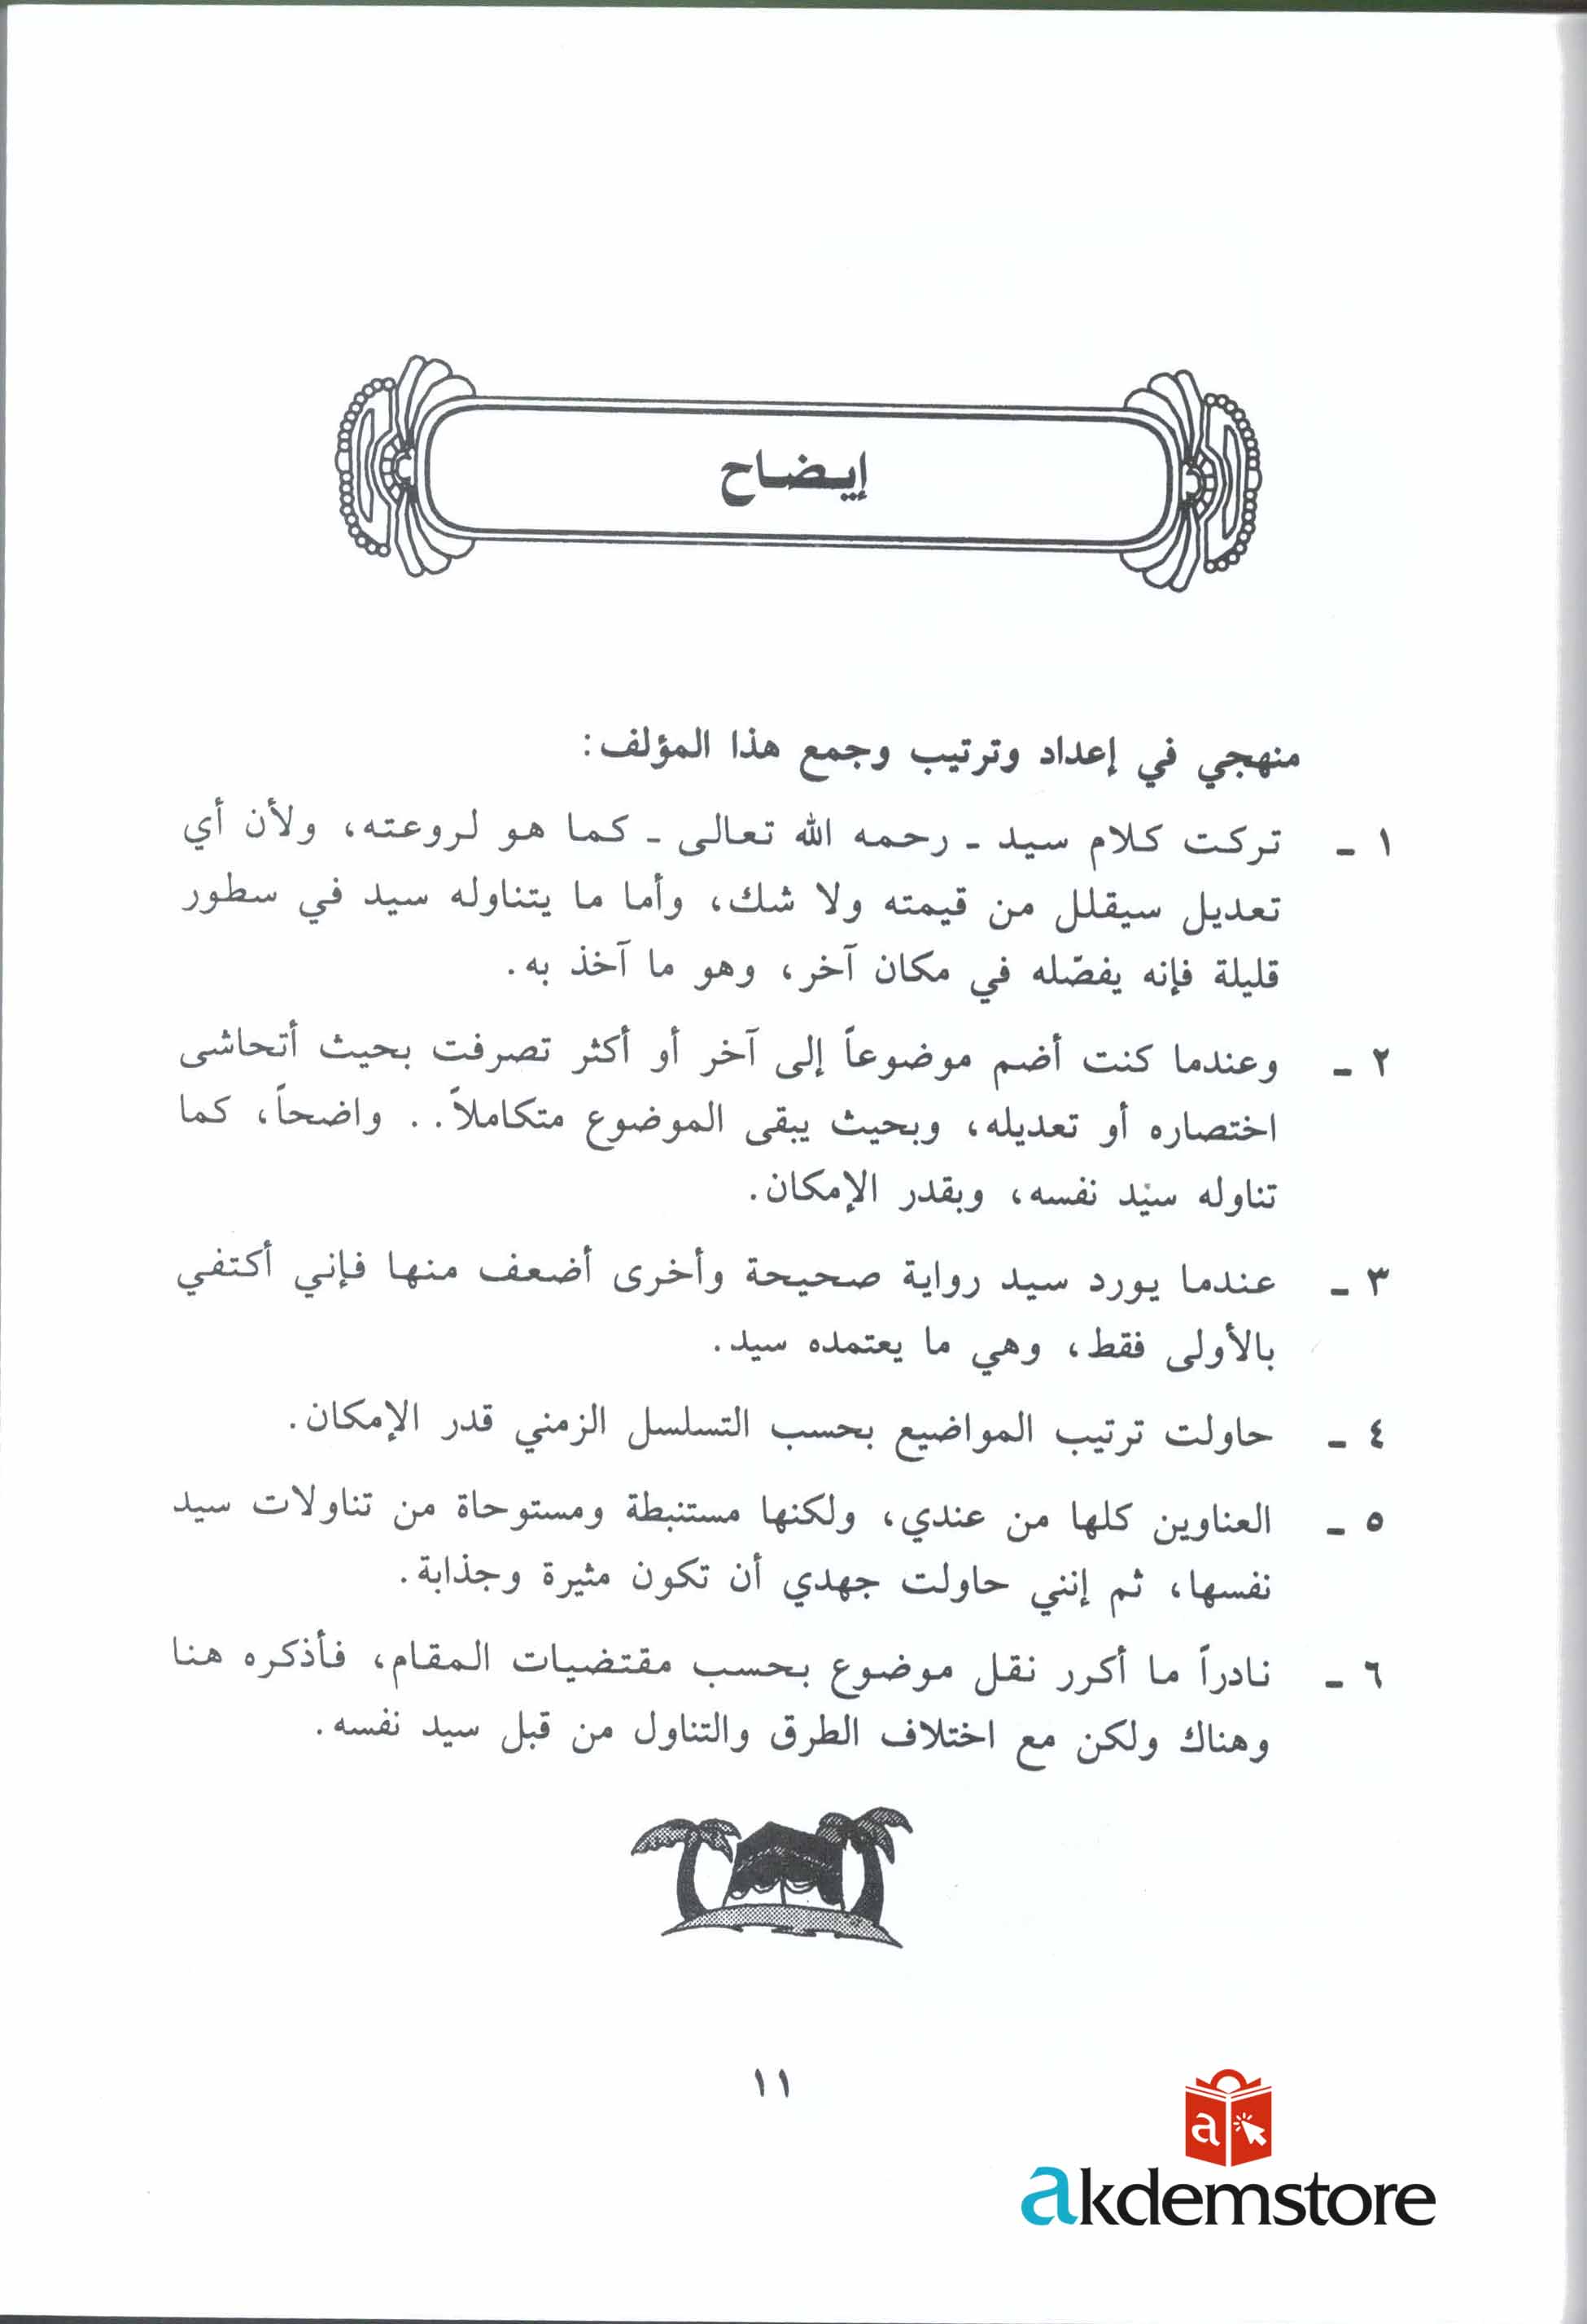 إيضاح
منهجي في إعداد وترتيب وجمع هذا المؤلف:
١ - تركت كلام سيد - رحمه الله تعالى - كما هو لروعته، ولأن أي
تعديل سيقلل من قيمته ولا شك، وأما ما يتناوله سيد في سطور
قليلة فإنه يفصّله في مكان آخر، وهو ما آخذ به.
٢ - وعندما كنت أضم موضوعاً إلى آخر أو أكثر تصرفت بحيث أتحاشى
اختصاره أو تعديله، وبحيث يبقى الموضوع متكاملاً.. واضحاً، كما
تناوله سيّد نفسه، وبقدر الإمكان.
٣ - عندما يورد سيد رواية صحيحة وأخرى أضعف منها فإني أكتفي
بالأولى فقط، وهي ما يعتمده سيد.
٤ - حاولت ترتيب المواضيع بحسب التسلسل الزمني قدر الإمكان.
٥ - العناوين كلها من عندي، ولكنها مستنبطة ومستوحاة من تناولات سيد
نفسها، ثم إنني حاولت جهدي أن تكون مثيرة وجذابة.
٦ - نادراً ما أكرر نقل موضوع بحسب مقتضيات المقام، فأذكره هنا
وهناك ولكن مع اختلاف الطرق والتناول من قبل سيد نفسه.
١١
a
akdemstore